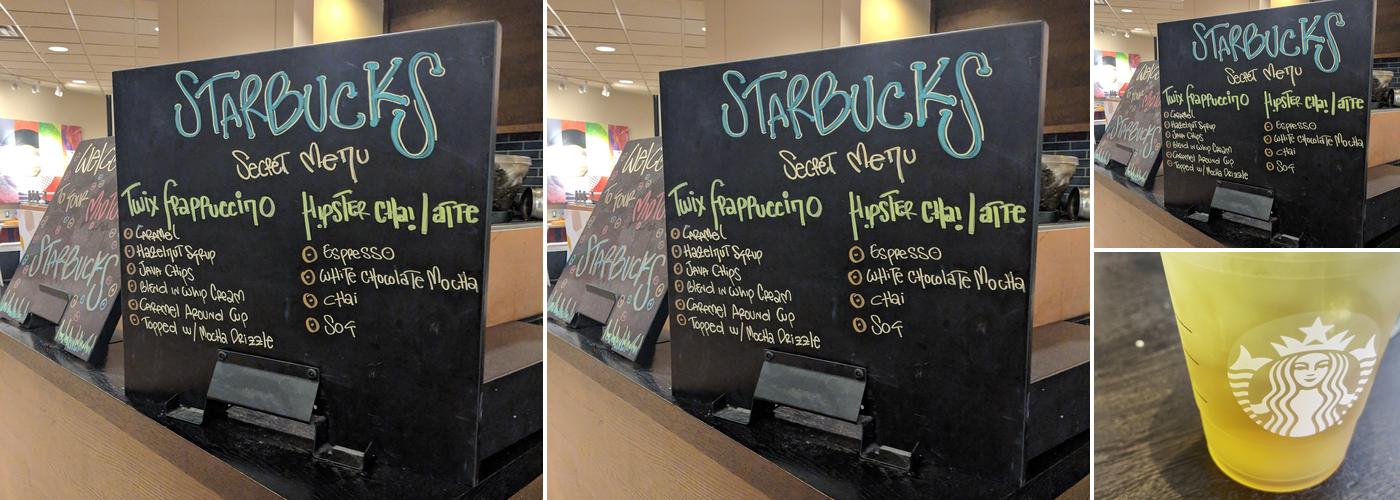 STARBUCKS
Secret Menu
Twix frappuccino
Caramel
Hazelnut Syrup
Java Chips
Blend in Whip Cream
Caramel Around Cup
Topped w/ Mocha Drizzle
Hipster Chai Latte
Espresso
White Chocolate Mocha
Chai
Soy
Welc
to your
STARBUCKS
STARBUCKS
Secret Menu
Twix frappuccino
Caramel
Hazelnut Syrup
Java Chips
Blend in Whip Cream
Caramel Around Cup
Topped w/ Mocha Drizzle
Hipster Chai Latte
Espresso
White Chocolate Mocha
Chai
Soy
Welc
to your
STARBUCKS
STARBUCKS
Secret Menu
Twix frappuccino
Caramel
Hazelnut Syrup
Java Chips
Blend in Whip Cream
Caramel Around Cup
Topped w/ Mocha Drizzle
Hipster Chai Latte
Espresso
White Chocolate Mocha
Chai
Soy
Welc
to your
STARBUCKS